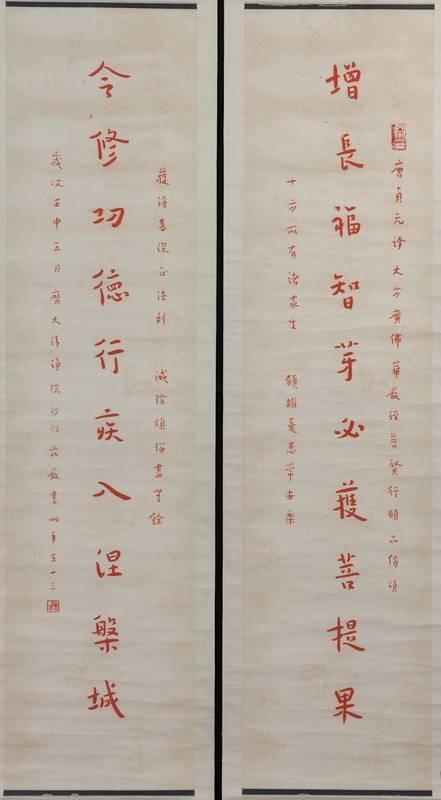 唐貞元譯大方廣佛華嚴經普賢行願品偈頌
增長福智芽必獲菩提果
十方所有諸眾生 願離憂患常安樂
獲得甚深正法利 滅除煩惱盡無餘
令修功德行疾入涅槃城
歲次壬申五月廣大清淨院沙門莊嚴書時年五十三